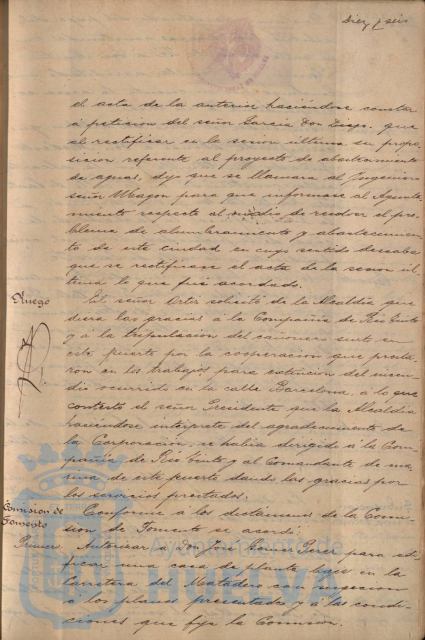 Diez y seis
el acta de la anterior haciéndose constar
á petición del señor García Don Diego, que
al rectificar en la sesión última su propo-
sición referente al proyecto de abastecimiento
de aguas, dijo que se llamara al Ingeniero
señor para que informase al Ayunta-
miento respecto al medio de resolver el pro-
blema de alumbramiento y abastecimien-
to de esta ciudad en cuyo sentido deseaba
que se rectificase el acta de la sesión úl-
tima lo que fué acordado.
Ruego
El señor Ortiz solicitó de la Alcaldía que
diera las gracias á la Compañía de Rio Tinto
y á la tripulación del cañonero surto en
este puerto por la cooperación que presta-
ron en los trabajos para extinción del incen-
dio ocurrido en la calle Barcelona, a lo que
contestó el señor Presidente que la Alcaldía
haciéndose intérprete del agradecimiento de
la Corporación, se había dirigido á la Com-
pañía de Rio Tinto y al Comandante de ma-
rina de este puerto dando las gracias por
los servicios prestados.
Comisión de
Fomento
Conforme á los dictámenes de la Comi-
sión de Fomento se acordó:
Primero. Autorizar a Don José Gómez Perez para edi-
ficar una casa de planta baja en la
Carretera del Matadero con sujeción
á los planos presentados y á las condi-
ciones que fija la Comisión.
Ayuntamiento de
HUELVA